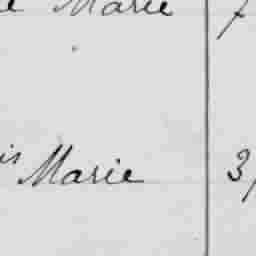 Marie 7
is Marie 3